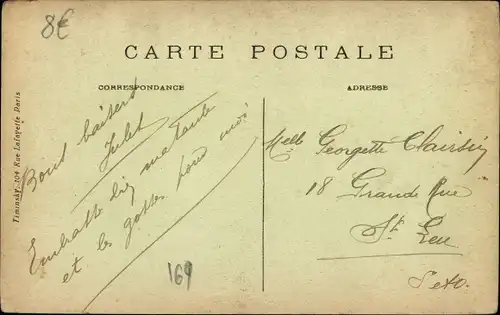 8€
CARTE POSTALE
CORRESPONDANCE
ADRESSE
Timinsky 104 Rue Lafayette Paris
Bons baisers
Julot
Embrasse bien ma tante
et les gosses pour moi
169
Melle Georgette
18 Grande Rue
St Leu
S et O.